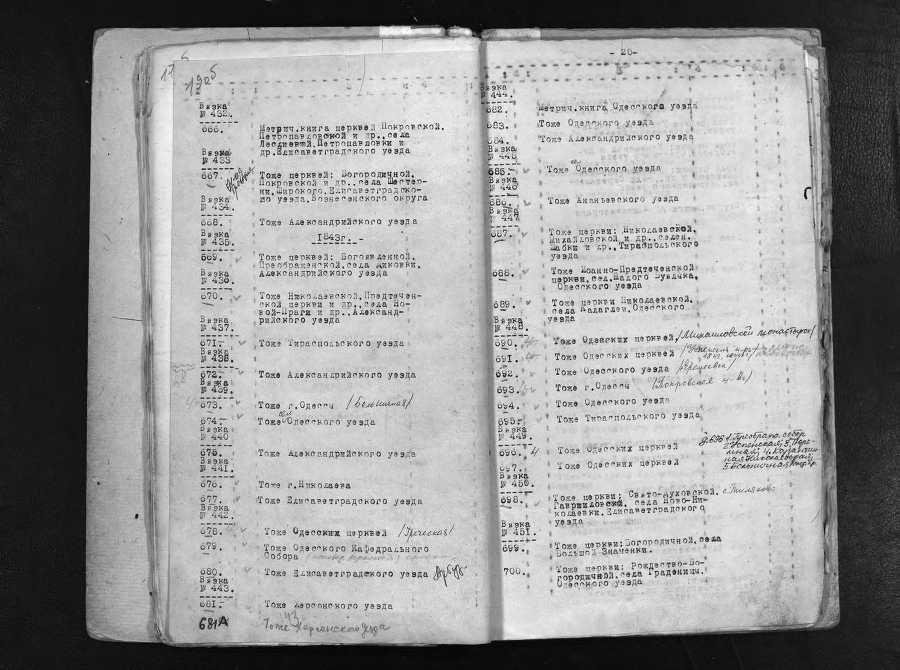 Вязка
№ 432.
666. Метрич.книга церквей Покровской,
Петропавловской и др., села
Леслиевый,Петропавловки и
др.Елисаветградского уезда
Вязка
№ 433
667. Тоже церквей: Богородичной,
Покровской и др., села Шестер-
ни,Широкого,Елисаветградско-
го уезда,Вознесенского округа
Вязка
№ 434.
668. Тоже Александрийского уезда
1843г.
Вязка
№ 435.
669. Тоже церквей: Богоявленной,
Преображенской,села Диковки,
Александрийского уезда
Вязка
№ 436.
670. Тоже Николаевской,Предтечен-
ской церкви и др., села Но-
вой-Праги и др., Александ-
рийского уезда
Вязка
№ 437.
671. Тоже Тираспольского уезда
Вязка
№ 438.
672. Тоже Александрийского уезда
Вязка
№ 439.
673. Тоже г.Одессы (Больничная)
674. Тоже Одесского уезда
Вязка
№ 440
675. Тоже Александрийского уезда
Вязка
№ 441.
676. Тоже г.Николаева
677. Тоже Елисаветградского уезда
Вязка
№ 442.
678. Тоже Одесских церквей (Греческая)
679. Тоже Одесского Кафедрального
Собора
680. Тоже Елисаветградского уезда
Вязка
№ 443.
681. Тоже Херсонского уезда
681А Тоже Херсонского уезда
- 26-
Вязка
№ 444.
682. Метрич.книга Одесского уезда
683. Тоже Одесского уезда
684. Тоже Александрийского уезда
Вязка
№ 445
685. Тоже Одесского уезда
Вязка
№ 446
686. Тоже Ананьевского уезда
Вязка
№ 447
687. Тоже церкви: Николаевской,
Михайловской и др., селен.
Шабки и др., Тираспольского
уезда
688. Тоже Иоанно-Предтеченской
церкви,сел.Малого Буялыка,
Одесского уезда
689. Тоже церкви Николаевской,
села Калаглеи,Одесского
уезда
Вязка
№ 448.
690. Тоже Одесских церквей (Михайловский монастырь)
691. Тоже Одесских церквей
692. Тоже Одесского уезда
693. Тоже г.Одессы (Покровская ц-вь)
694. Тоже Одесского уезда
695. Тоже Тираспольского уезда
Вязка
№ 449.
696. Тоже Одесских церквей
697. Тоже Одесских церквей
Вязка
№ 450.
698. Тоже церкви: Свято-Духовской,
Гавриловской, села Ново-Ни-
колаевки,Елисаветградского
уезда
Вязка
№ 451.
699. Тоже церкви:Богородичной,села
Большой Знаменки.
700. Тоже церкви: Рождество-Бо-
городичной,села Граденицы,
Одесского уезда